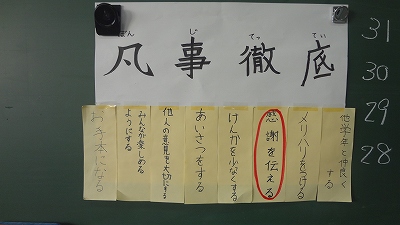 ぼん じ てっ てい
凡事徹底
他学年と仲良く
する
メリハリをつける
感謝を伝える
けんかを少なくする
あいさつをする
他人の意見を大切にする
みんなが楽しめる
ようにする
お手本になる
31
30
29
28